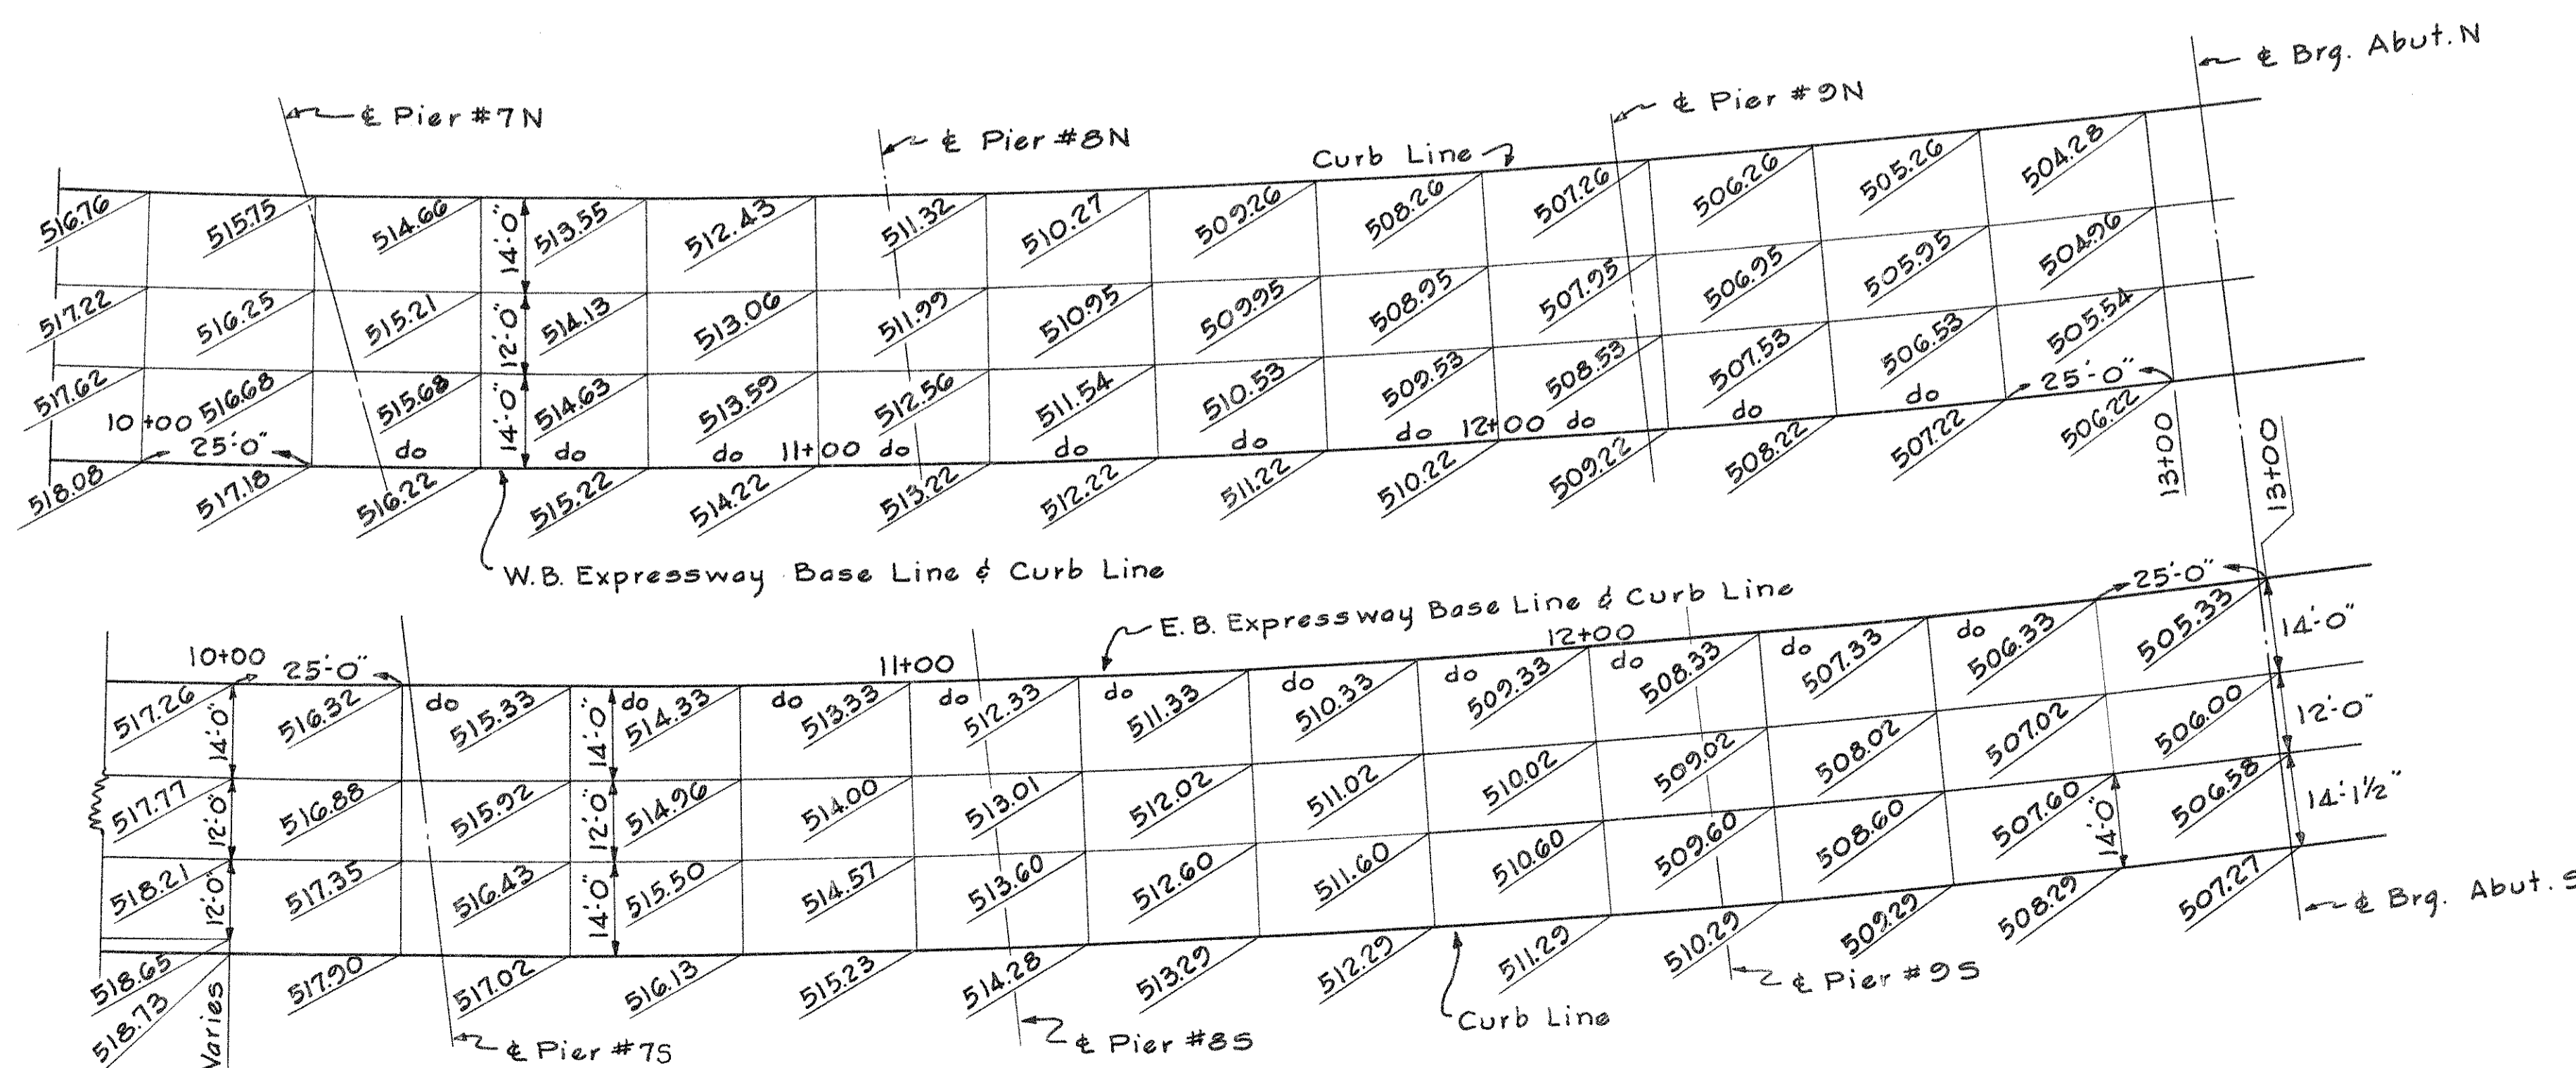 ℄ Brg. Abut. N
℄ Pier #7N
℄ Pier #8N
℄ Pier #9N
Curb Line
516.76 515.75 514.66 513.55 512.43 511.32 510.27 509.26 508.26 507.26 506.26 505.26 504.28
14'-0"
517.22 516.25 515.21 514.13 513.06 511.99 510.95 509.95 508.95 507.95 506.95 505.95 504.96
12'-0"
517.62 516.68 515.68 514.63 513.59 512.56 511.54 510.53 509.53 508.53 507.53 506.53 505.54
14'-0"
10+00 25'-0" do do do 11+00 do do do do 12+00 do do do 25'-0"
518.08 517.18 516.22 515.22 514.22 513.22 512.22 511.22 510.22 509.22 508.22 507.22 506.22
13+00
13+00
W.B. Expressway Base Line & Curb Line
E.B. Expressway Base Line & Curb Line
10+00 25'-0" 11+00 12+00 25'-0"
do do do do do do do do do do
517.26 516.32 515.33 514.33 513.33 512.33 511.33 510.33 509.33 508.33 507.33 506.33 505.33
14'-0" 14'-0" 14'-0"
517.77 516.88 515.92 514.96 514.00 513.01 512.02 511.02 510.02 509.02 508.02 507.02 506.00
12'-0" 12'-0" 12'-0"
518.21 517.35 516.43 515.50 514.57 513.60 512.60 511.60 510.60 509.60 508.60 507.60 506.58
12'-0" 14'-0" 14'-0" 14'-1½"
518.65
518.73 517.90 517.02 516.13 515.23 514.28 513.29 512.29 511.29 510.29 509.29 508.29 507.27
Varies
℄ Pier #7S
℄ Pier #8S
Curb Line
℄ Pier #9S
℄ Brg. Abut. S